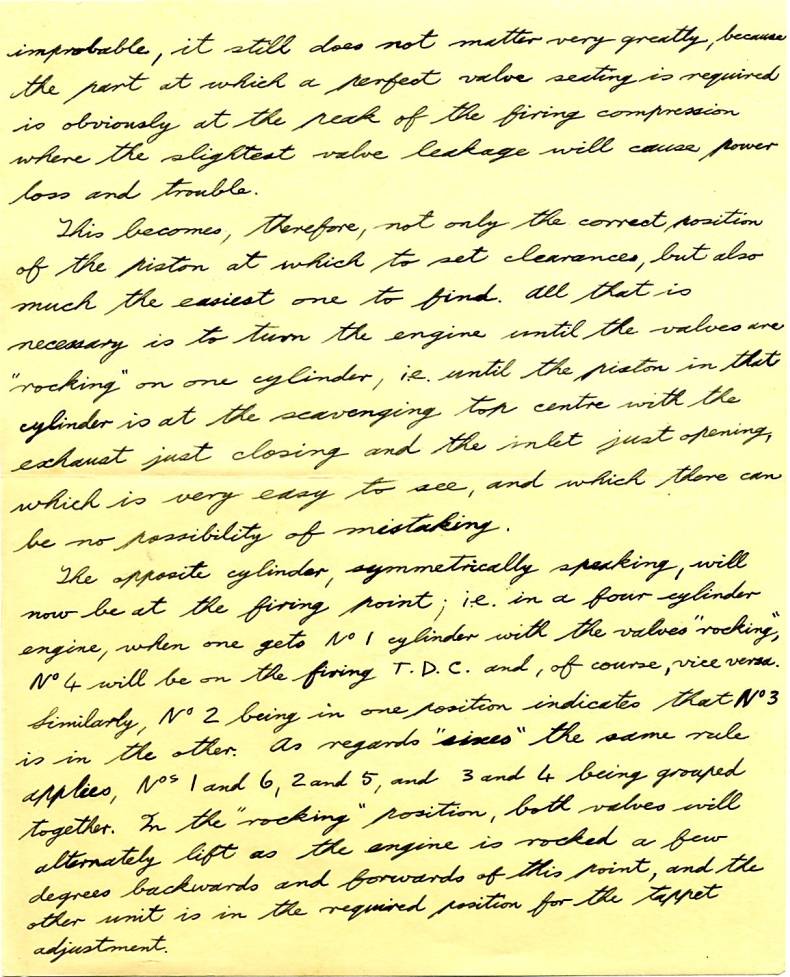 improbable, it still does not matter very greatly, because
the part at which a perfect valve seating is required
is obviously at the peak of the firing compression
where the slightest valve leakage will cause power
loss and trouble.
This becomes, therefore, not only the correct position
of the piston at which to set clearances, but also
much the easiest one to find. All that is
necessary is to turn the engine until the valves are
"rocking" on one cylinder, i.e. until the piston in that
cylinder is at the scavenging top centre with the
exhaust just closing and the inlet just opening,
which is very easy to see, and which there can
be no possibility of mistaking.
The opposite cylinder, symmetrically speaking, will
now be at the firing point; i.e. in a four cylinder
engine, when one gets Nº 1 cylinder with the valves "rocking",
Nº 4 will be on the firing T.D.C. and, of course, vice versa.
Similarly, Nº 2 being in one position indicates that Nº 3
is in the other. As regards "sixes" the same rule
applies, Nos 1 and 6, 2 and 5, and 3 and 4 being grouped
together. In the "rocking" position, both valves will
alternately lift as the engine is rocked a few
degrees backwards and forwards of this point, and the
other unit is in the required position for the tappet
adjustment.